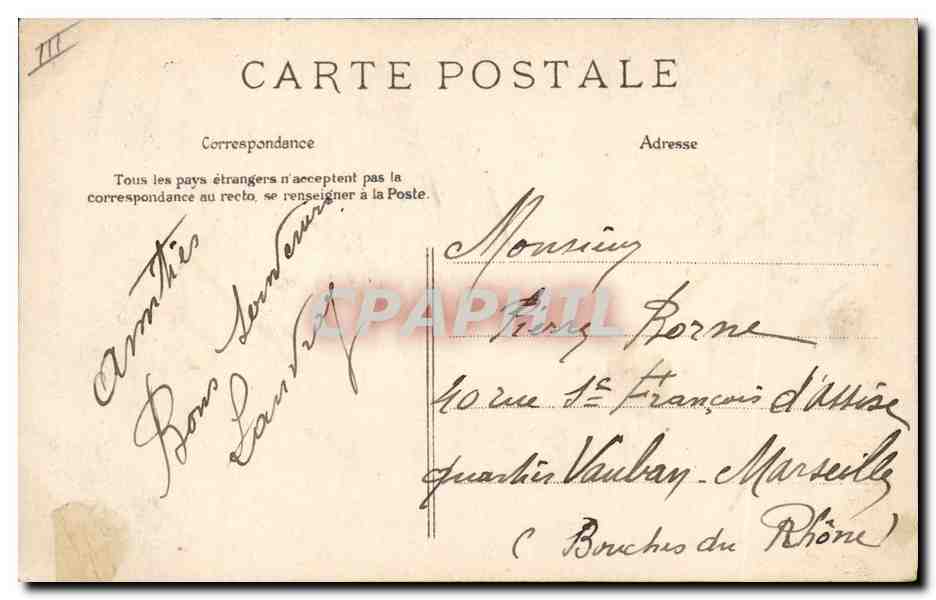 III
CARTE POSTALE
Correspondance
Tous les pays étrangers n'acceptent pas la
correspondance au recto, se renseigner à la Poste.
Amitiés
Bons Souvenirs
Adresse
Monsieur
Pierre Borne
40 rue St François d'Assise
quartier Vauban - Marseille
(Bouches du Rhône)
CPAPHIL